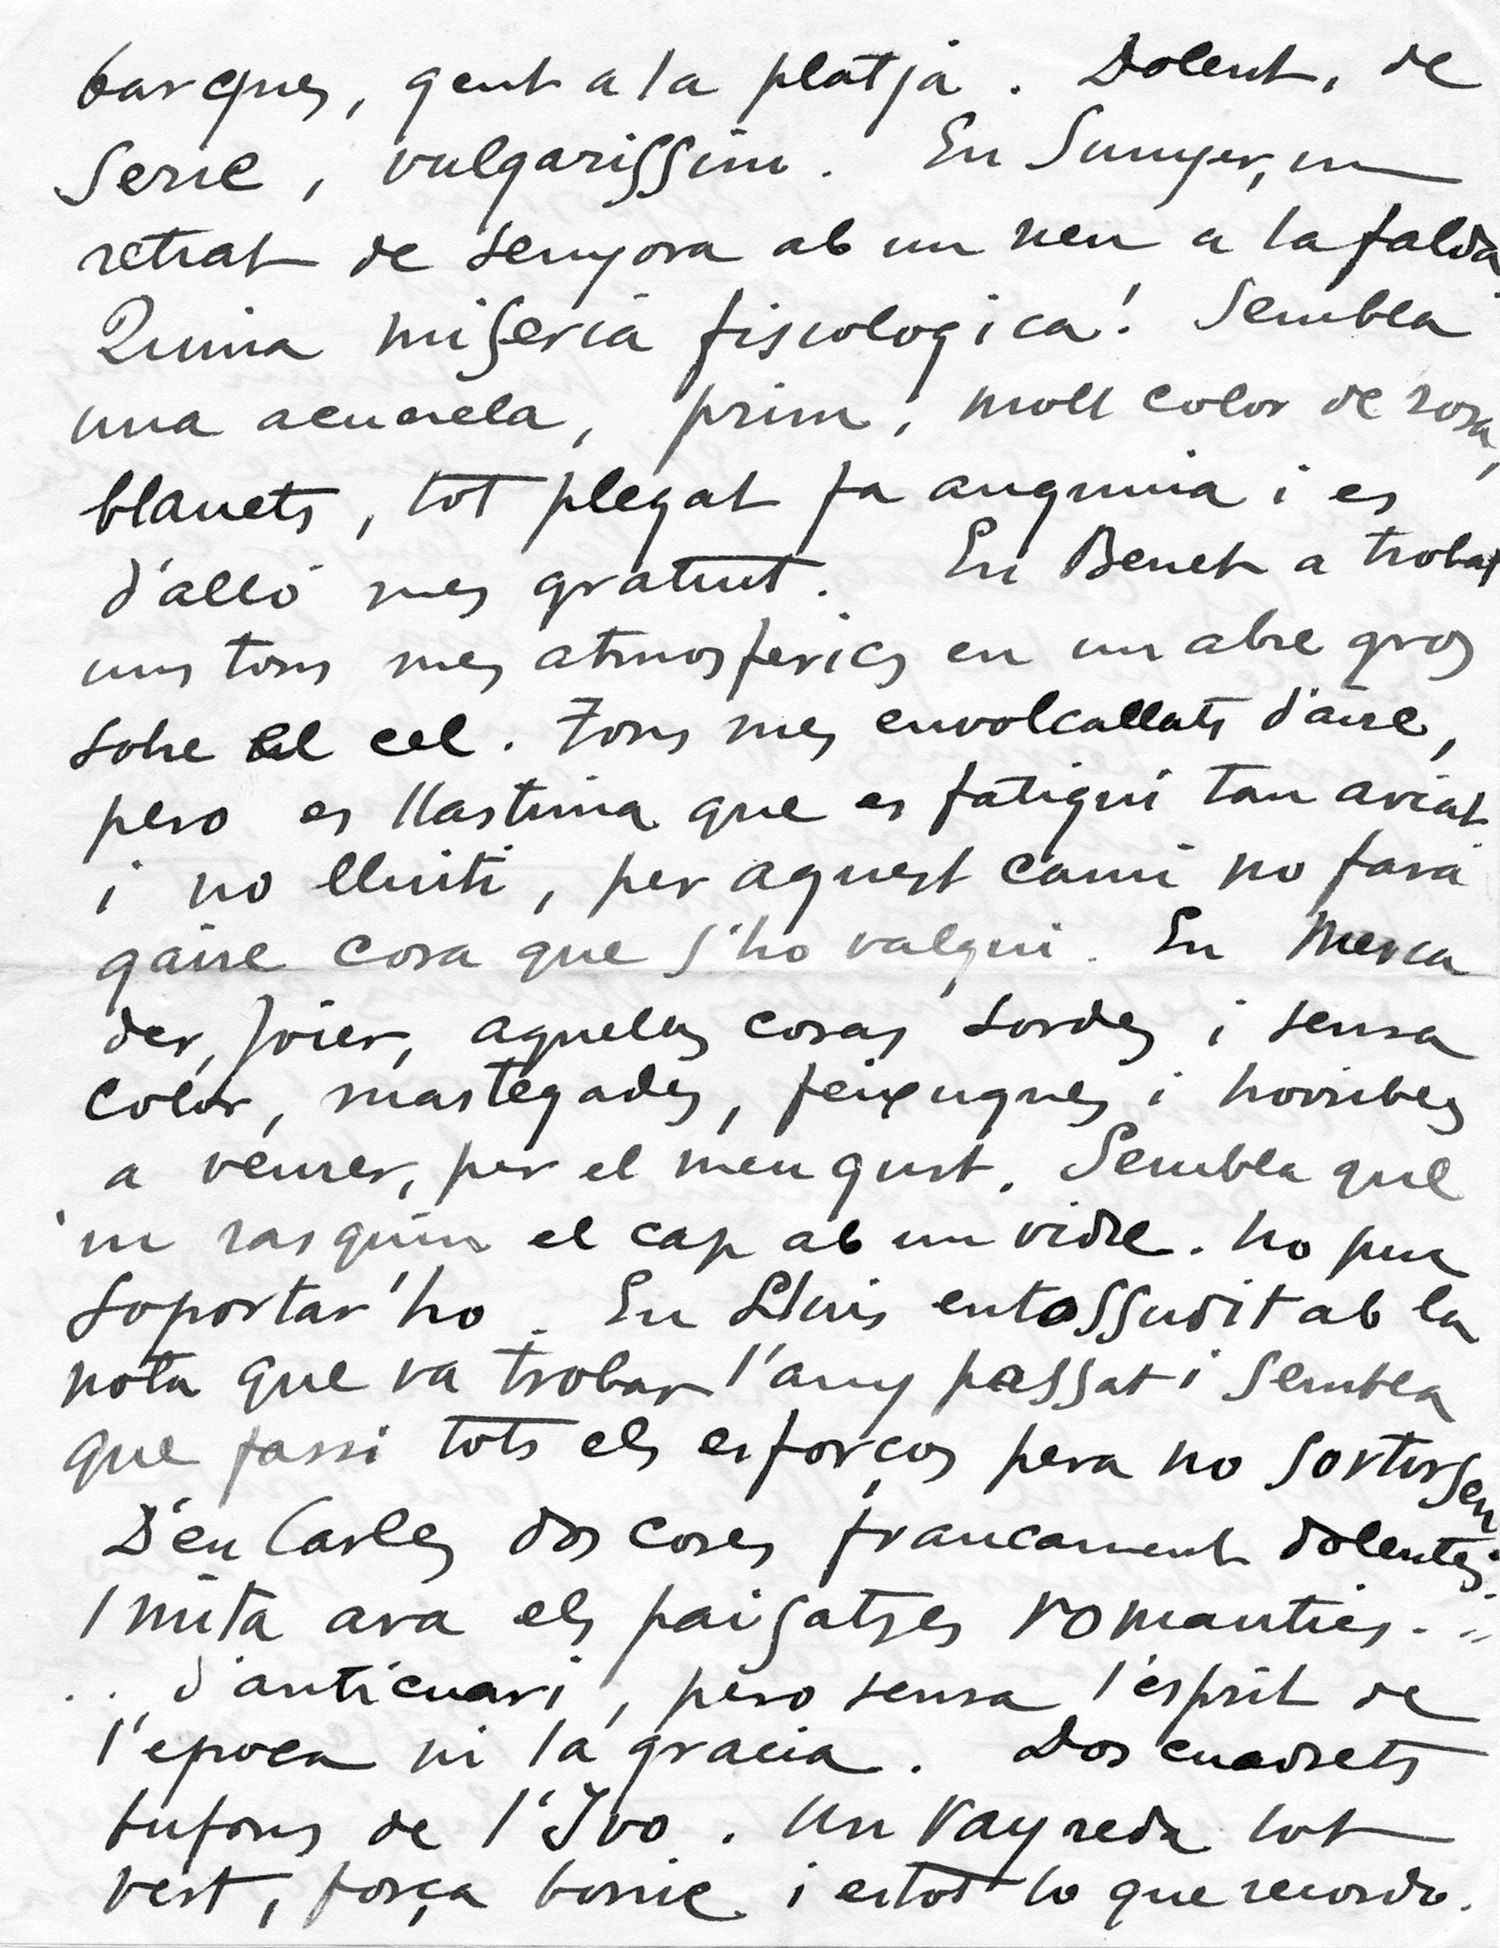 barques, gent a la platja. Dolent, de
serie, vulgarissim. En Sunyer, un
retrat de senyora ab un nen a la falda
Quina miseria fisiologica! Sembla
una acuarela, prim, molt color de rosa,
blauets, tot plegat fa angunia i es
d'alló mes gratuit. En Benet a trobat
uns tons mes atmosferics en un abre gros
sobre el cel. Tons mes envolcallats d'aire,
pero es llastima que es fatigui tan aviat
i no lluiti, per aquest cami no fará
gaire cosa que s'ho valgui. En Merca
der, Joier, aqueles cosas sordes i sensa
color, mastegades, feixugues i horribles
a veurer, per el meu gust. Sembla que
'm rasquin el cap ab un vidre. No puc
soportar'ho. En Lluis entossudit ab la
nota que va trobar l'any passat i sembla
que fassi tots els esforços pera no sortirsen
D'en Carles dos coses francament dolentes.
Imita ara els paisatges romantics...
... d'anticuari, pero sensa l'esprit de
l'epoca ni la gracia. Dos cuadrets
bufons de l'Ivo. Un Vayreda tot
vert, força bonic i es tot lo que recordo.